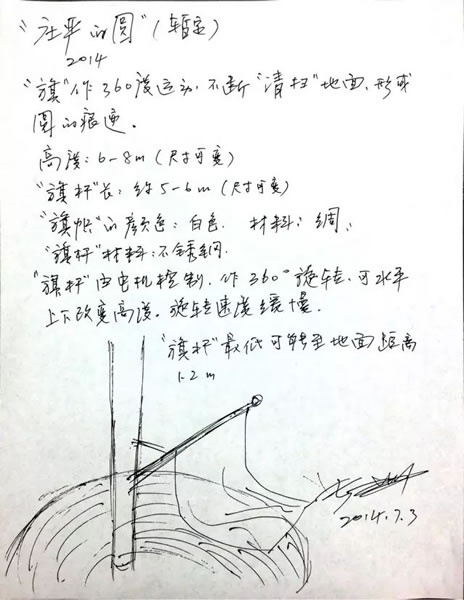 “平的圆”(暂定)
2014
“旗”作360度运动,不断“清扫”地面,形成
圆的痕迹。
高度:6-8m(尺寸可变)
“旗杆”长:约5-6m(尺寸可变)
“旗帜”的颜色:白色. 材料:绸。
“旗杆”材料:不锈钢.
“旗杆”由电机控制,作360°旋转,可水平
上下改变高度。旋转速度缓慢.
“旗杆”最低可转至地面距离
1-2m
2014.7.3